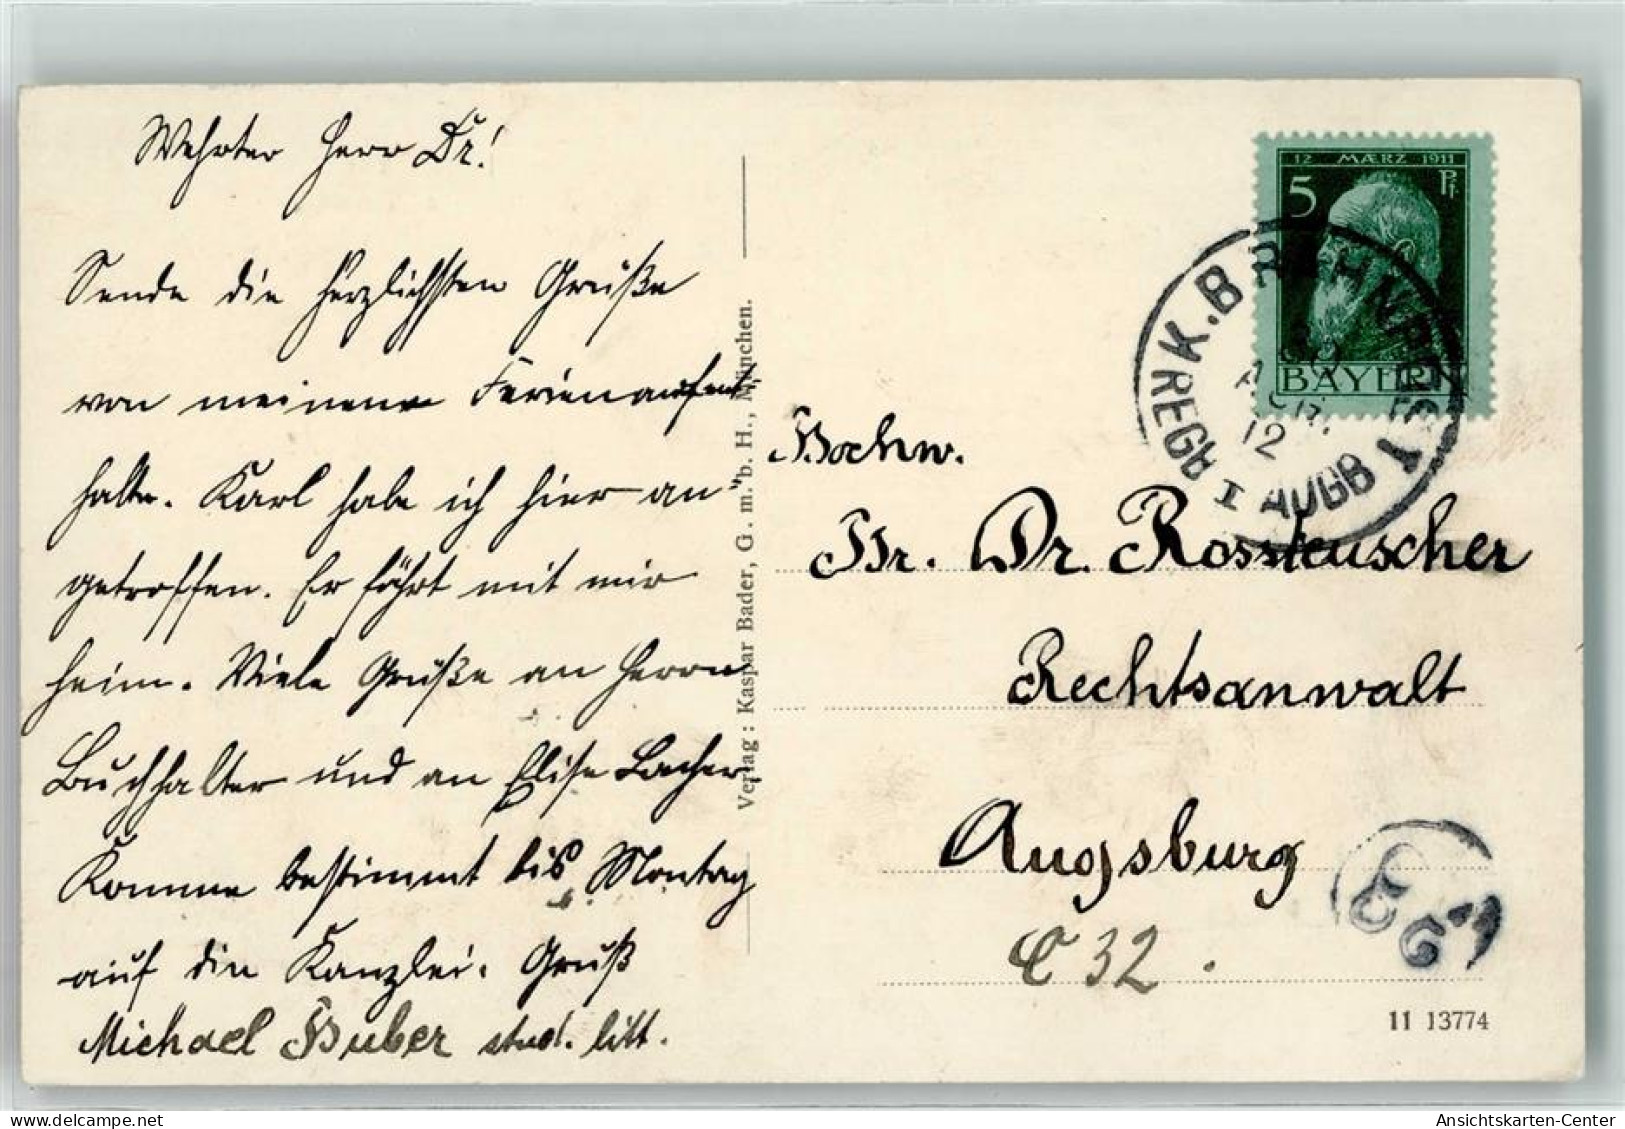 Wehrter Herr Dr!
Sende die herzlichsten Grüße
von meinem Ferienaufent-
halte. Karl habe ich hier an-
getroffen. Er fährt mit mir
heim. Viele Grüße an Herrn
Buchhalter und an Elise Lacher.
Komme bestimmt bis Montag
auf die Kanzlei. Gruß
Michael Huber stud. litt.
Verlag: Kaspar Bader, G. m. b. H., München.
12 MÆRZ 1911
5 Pf
BAYERN
K. B. BAHNPOST I
AUGB I REGA
12
Hochw.
Hr. Dr. Rossteuscher
Rechtsanwalt
Augsburg
C 32.
11 13774
Ansichtskarten-Center